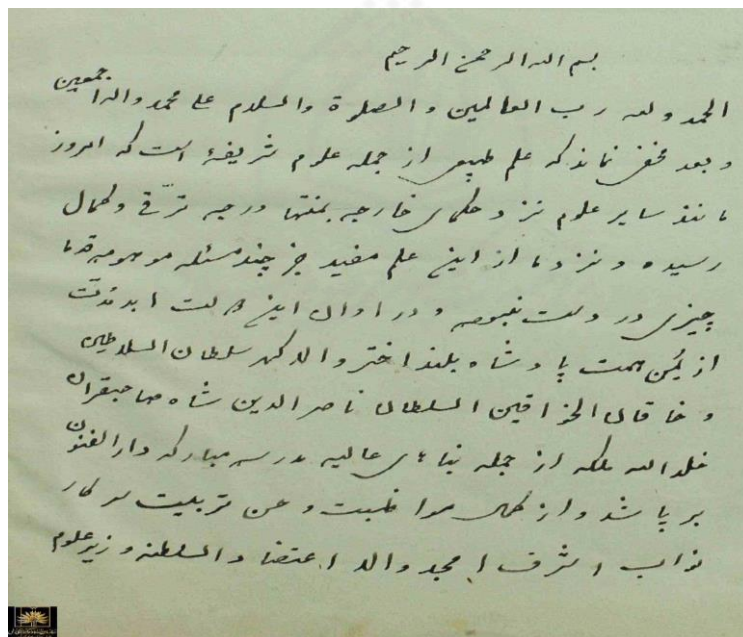 بسم الله الرحمن الرحیم
الحمد لله رب العالمین و الصلوة و السلام علی محمد و اله اجمعین
و بعد مخفی نماند که علم طبیعی از جمله علوم شریفهٔ است که امروز
مانند سایر علوم نزد حکمای خارجه بمنتها درجه ترقّی و کمال
رسیده و نزد ما از این علم مفید جز چند مسئله موهومه قدما
چیزی در دست نبوده و در اوان این دولت ابد مدّت
از یُمن همت پادشاه بلند اختر والا گهر سلطان السلاطین
و خاقان الخواقین السلطان ناصر الدین شاه صاحبقران
خلد الله ملکه از جمله بناهای عالیه مدرسه مبارکه دار الفنون
بر پا شد و از کمال مواظبت و حسن تربیت سرکار
نواب اشرف امجد والا اعتضاد السلطنه وزیر علوم